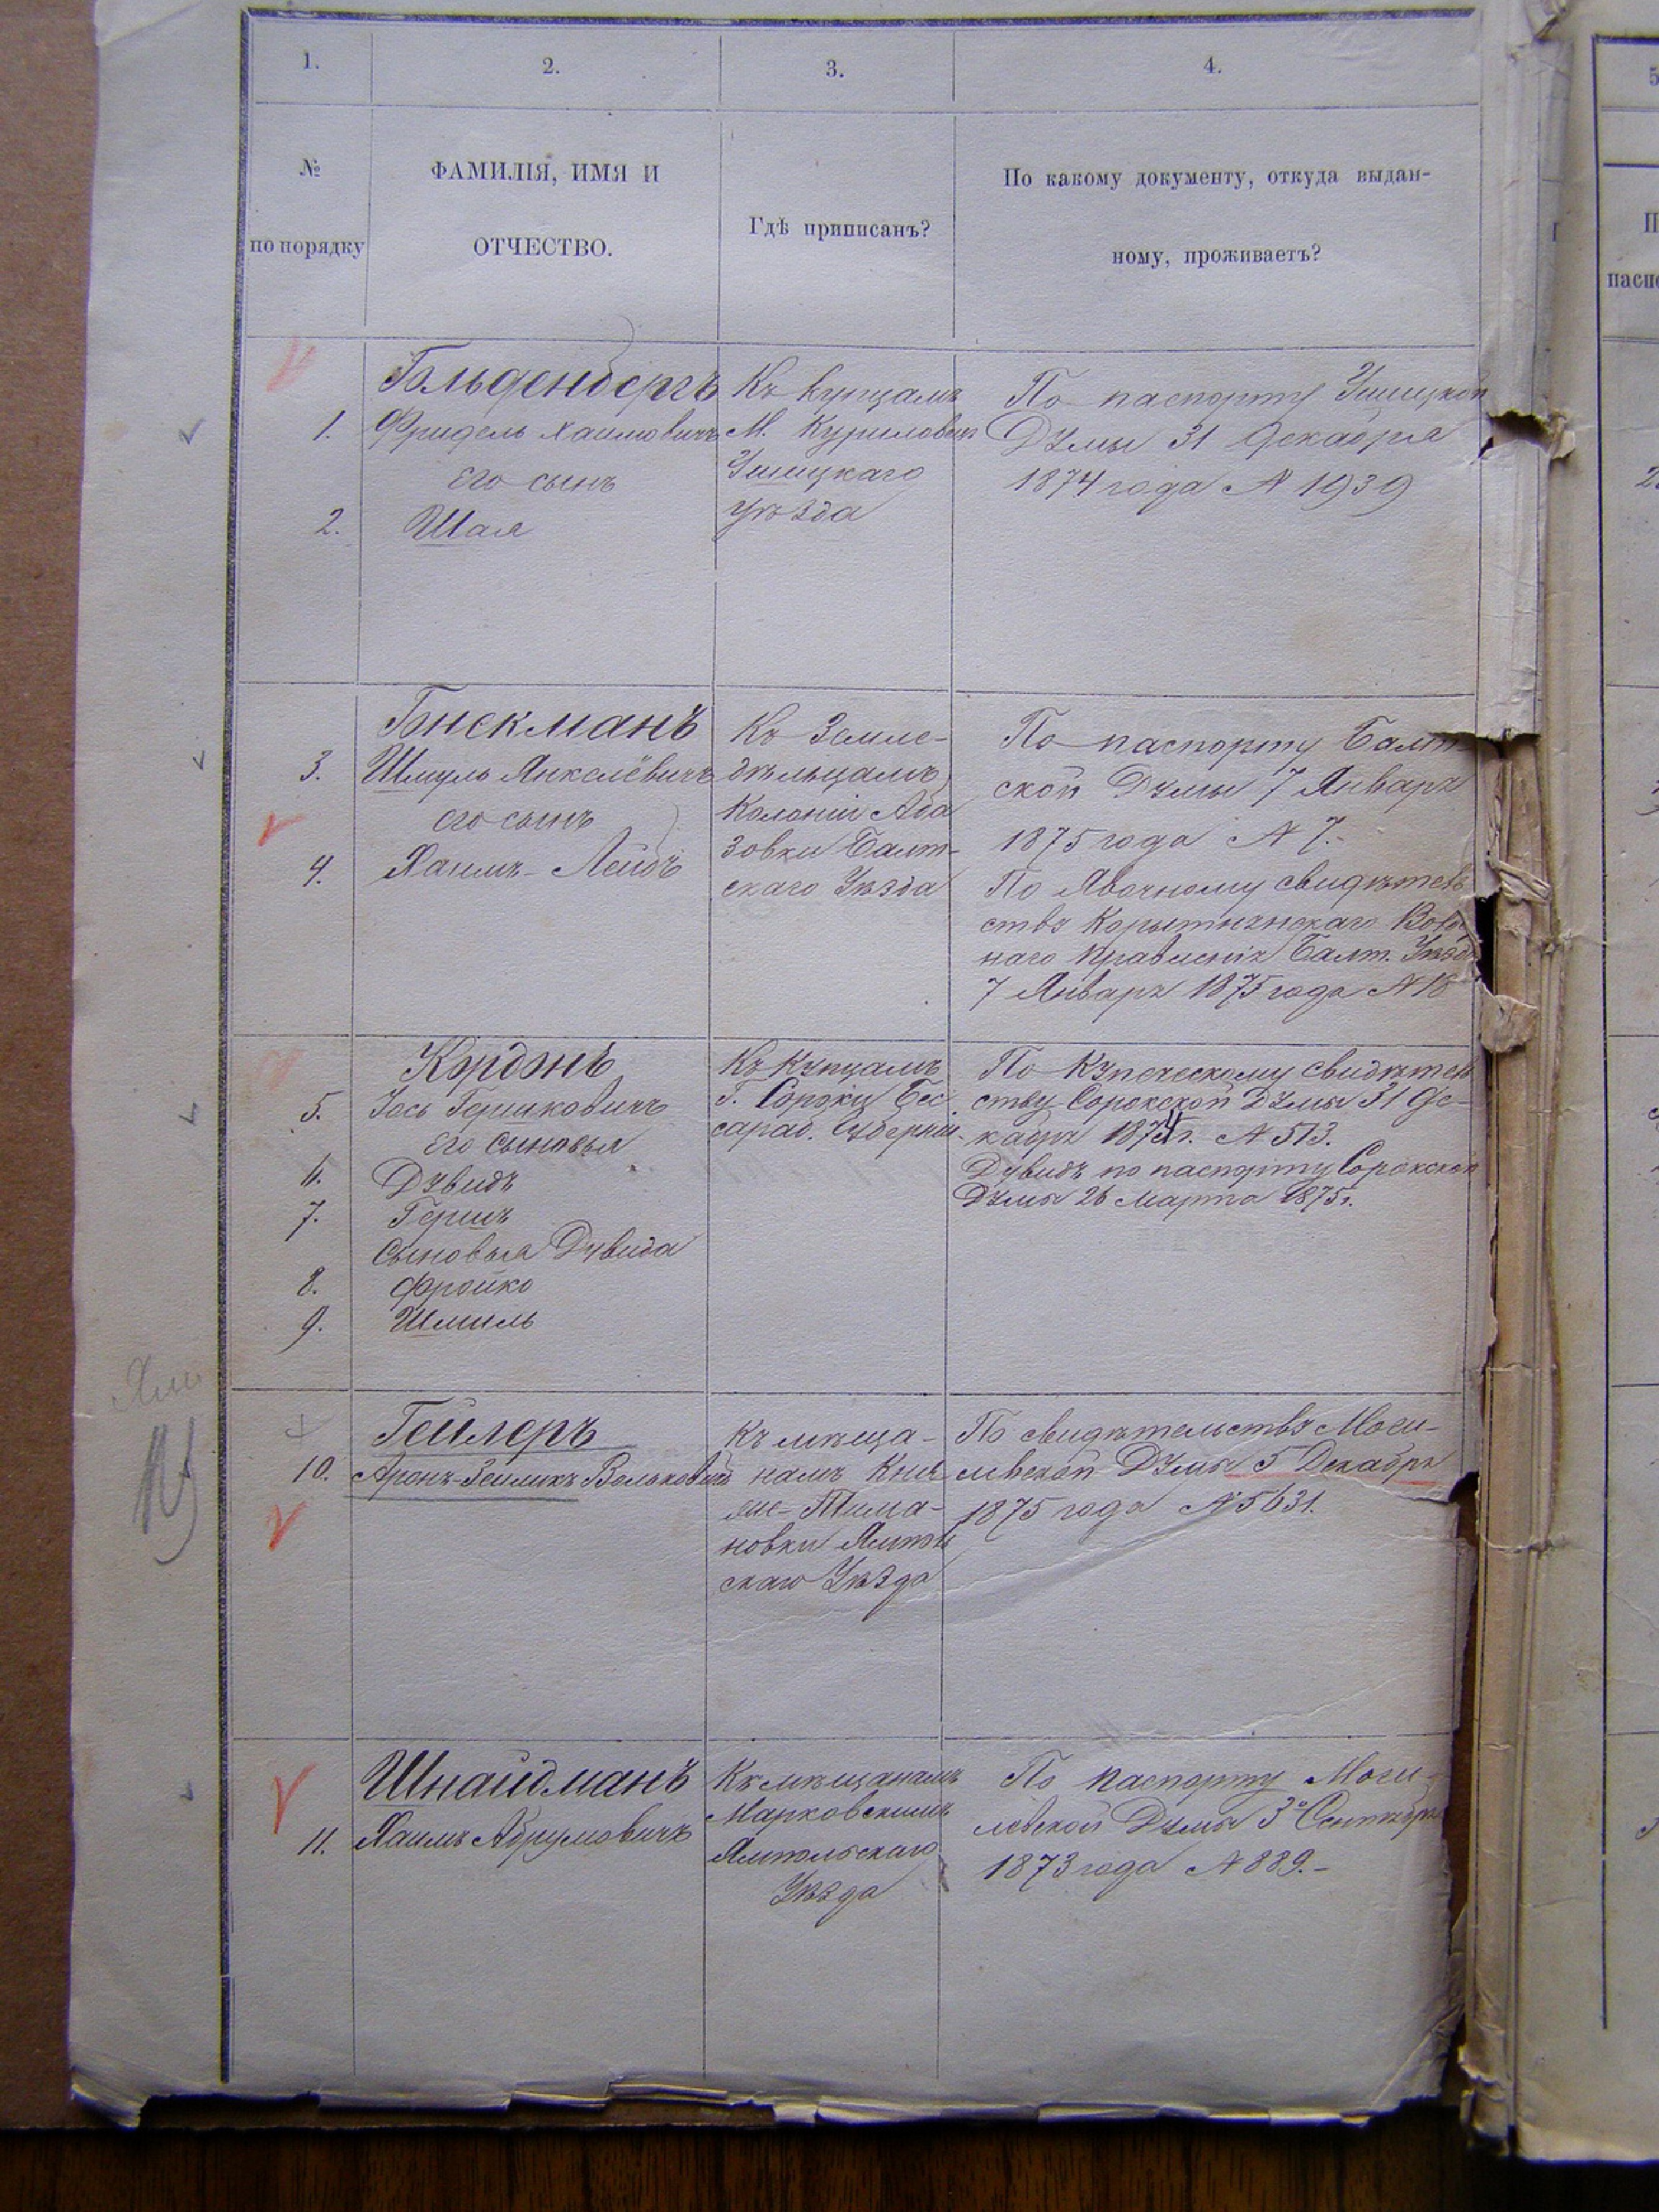 1.
2.
3.
4.
5
№
по порядку
ФАМИЛІЯ, ИМЯ И
ОТЧЕСТВО.
Гдѣ приписанъ?
По какому документу, откуда выдан-
ному, проживаетъ?
П
паспо
Гольденбергъ
1. Фридель Хаимовичъ
его сынъ
2. Шая
Къ купцамъ
М. Куриловецъ
Ушицкаго
уѣзда
По паспорту Ушицкой
Думы 31 Декабря
1874 года № 1939
3. Шмуль Янкелёвичъ
его сынъ
4. Хаимъ-Лейбъ
Къ Земле-
дѣльцамъ
Колоніи Аба
зовки Балт-
скаго Уѣзда
По паспорту Балт
ской Думы 7 Января
1875 года № 7.-
По Явочному свидѣтель
ству Корытнянскаго Волос
наго Правленія Балт. Уѣзд
7 Января 1875 года № 16
Кордонъ
5. Іось Гершковичъ
Его сыновья
6. Дувидъ
7. Гершъ
Сыновья Дувида
8. Фройко
9. Шмиль
Къ Купцамъ
Г. Сороки Бес
сараб. Губерніи.
По Купеческому свидѣтель
ству Сорокской Думы 31 Де-
кабря 1874 г. № 513.
Дувидъ по паспорту Сорокской
Думы 26 Марта 1875 г.
Гейлеръ
10. Аронъ-Зейликъ Вольковичъ
Къ мѣща-
намъ Кня
же-Тима-
новки Ямполь
скаго Уѣзда
По свидѣтельству Моги-
левской Думы 5 Декабря
1875 года № 5631.
Шнайдманъ
11. Хаимъ Абрумовичъ
Къ мѣщанамъ
Марковскимъ
Ямпольскаго
Уѣзда
По паспорту Моги-
левской Думы 3го Сентября
1873 года № 889.-